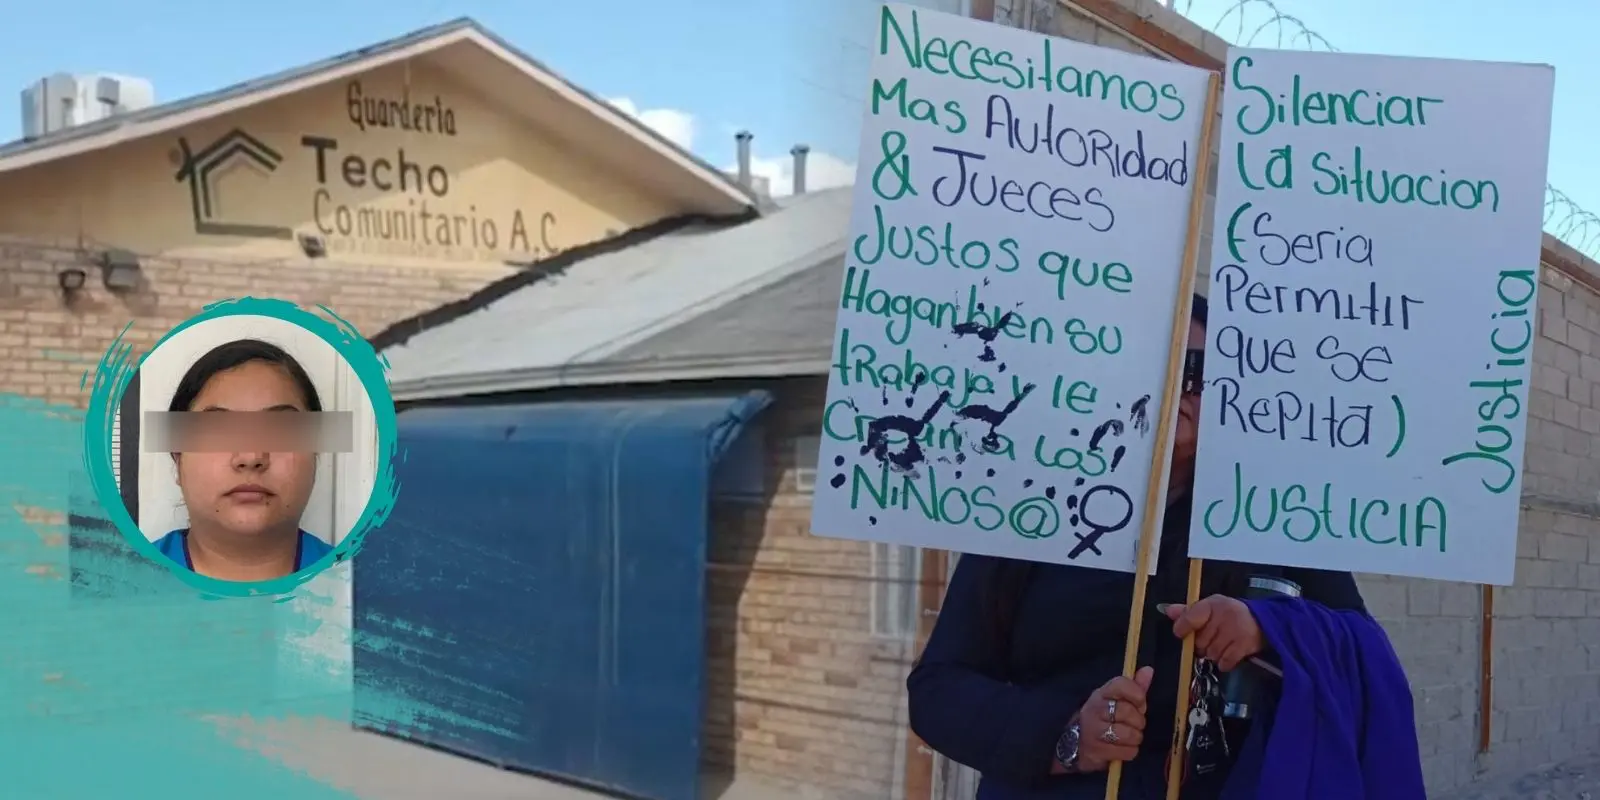 Guarderia
Techo
Comunitario A.C.
Necesitamos
Mas AutoRidad
& Jueces
Justos que
Hagan bien su
tRabajo y le
Crean a los
NiÑos@
Silenciar
La Situacion
(Seria
Permitir
que se
Repita)
Justicia
Justicia